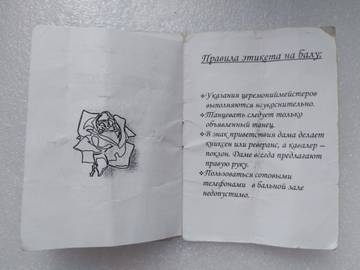 Правила этикета на балу:
❖Указания церемониймейстеров
выполняются неукоснительно.
❖Танцевать следует только
объявленный танец.
❖В знак приветствия дама делает
книксен или реверанс, а кавалер –
поклон. Даме всегда предлагают
правую руку.
❖Пользоваться сотовыми
телефонами в бальной зале
недопустимо.